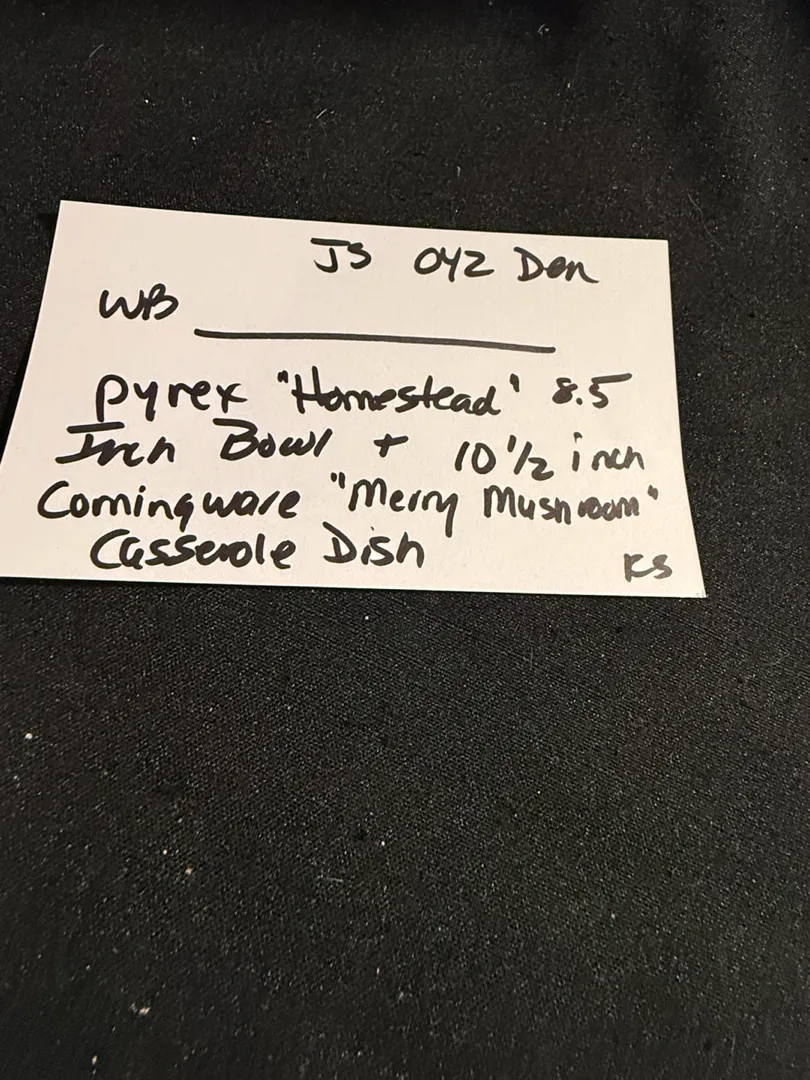 JS 042 Den
WB
Pyrex "Homestead" 8.5
Inch Bowl + 10 1/2 inch
Corningware "Merry Mushroom"
Casserole Dish
KS